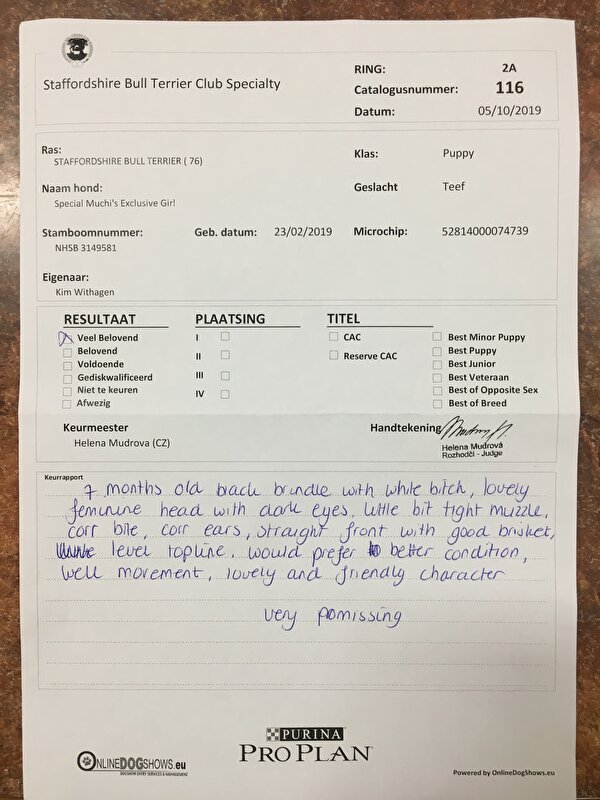 Staffordshire Bull Terrier Club Specialty
RING: 2A
Catalogusnummer: 116
Datum: 05/10/2019
Ras:
STAFFORDSHIRE BULL TERRIER ( 76)
Klas: Puppy
Naam hond:
Special Muchi's Exclusive Girl
Geslacht Teef
Stamboomnummer:
NHSB 3149581
Geb. datum: 23/02/2019
Microchip: 52814000074739
Eigenaar:
Kim Withagen
RESULTAAT
Veel Belovend
Belovend
Voldoende
Gediskwalificeerd
Niet te keuren
Afwezig
PLAATSING
I
II
III
IV
TITEL
CAC
Reserve CAC
Best Minor Puppy
Best Puppy
Best Junior
Best Veteraan
Best of Opposite Sex
Best of Breed
Keurmeester
Helena Mudrova (CZ)
Handtekening
Helena Mudrová
Rozhodčí - Judge
Keurrapport
7 months old black brindle with white bitch, lovely
feminine head with dark eyes, little bit tight muzzle,
corr bite, corr ears, straight front with good brisket,
level topline, would prefer better condition,
well movement, lovely and friendly character
very pomissing
ONLINEDOGSHOWS.eu
DOGSHOW ENTRY SERVICES & MANAGEMENT
PURINA
PRO PLAN
Powered by OnlineDogShows.eu